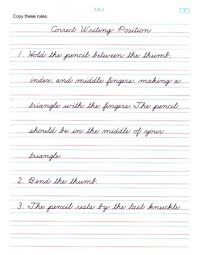 Copy these rules.
Correct Writing Position
1. Hold the pencil between the thumb,
index, and middle fingers, making a
triangle with the fingers. The pencil
should be in the middle of your
triangle.
2. Bend the thumb.
3. The pencil rests by the last knuckle.